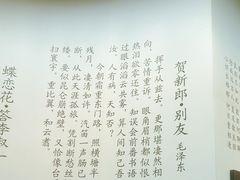 贺新郎·别友
毛泽东
挥手从兹去。更那堪凄然相
向,苦情重诉。眼角眉梢都似恨,
热泪欲零还住。知误会前番书语。
过眼滔滔云共雾,算人间知己吾
汝。人有病,天知否?
今朝霜重东门路,照横塘半
天残月,凄清如许。汽笛一声肠已
断,从此天涯孤旅。凭割断愁丝
恨缕。要似昆仑崩绝壁,又恰像台
风扫寰宇。重比翼,和云翥。
蝶恋花·答李淑一